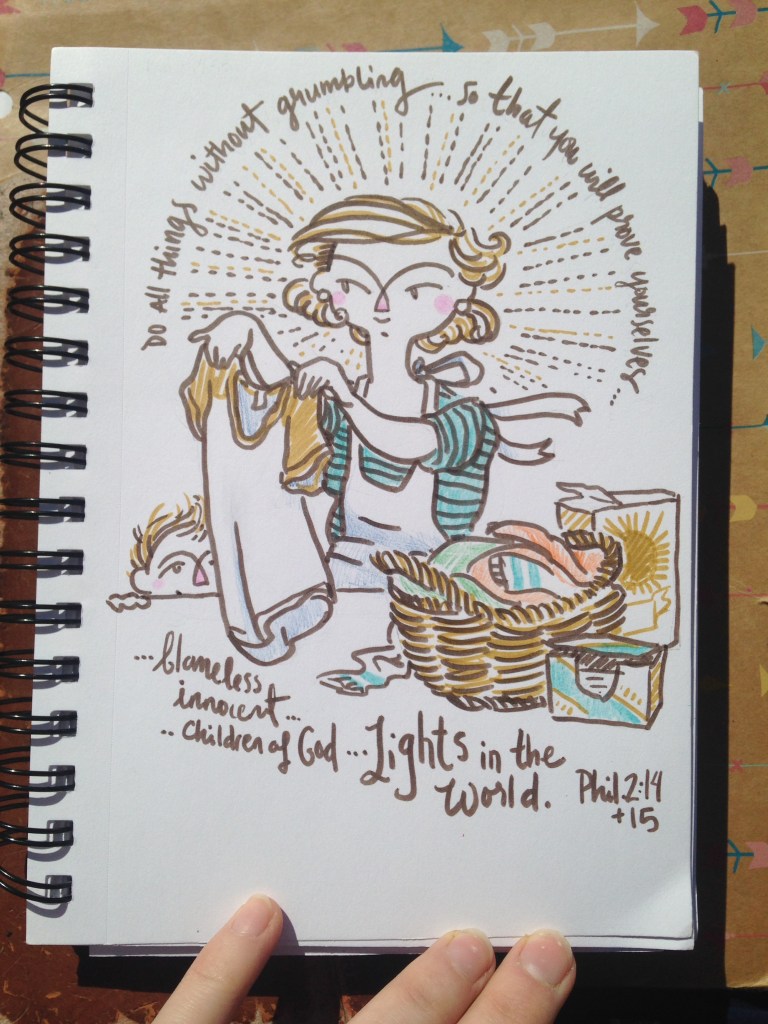 Do All things without grumbling ... so that you will prove yourselves ...
... blameless
innocent...
.. children of God ... Lights in the
World.
Phil. 2:14
+15